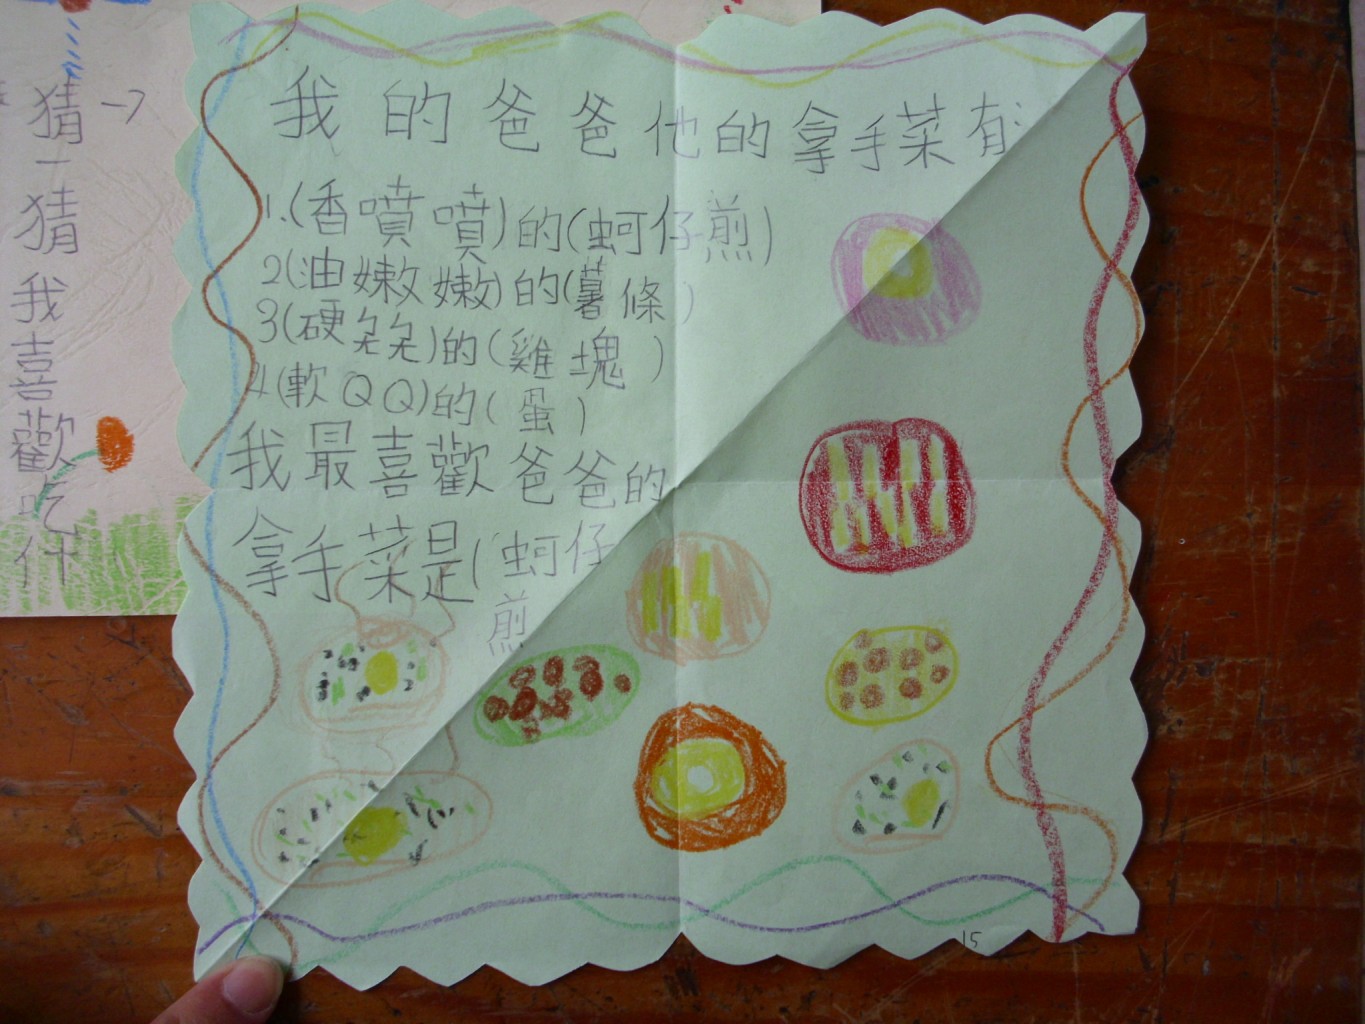 我的爸爸他的拿手菜有
1.(香噴噴)的(蚵仔煎)
2(油嫩嫩)的(薯條)
3(硬兌兌)的(雞塊)
4(軟QQ)的(蛋)
我最喜歡爸爸的
拿手菜是(蚵仔
煎
15
猜一猜我喜歡吃什